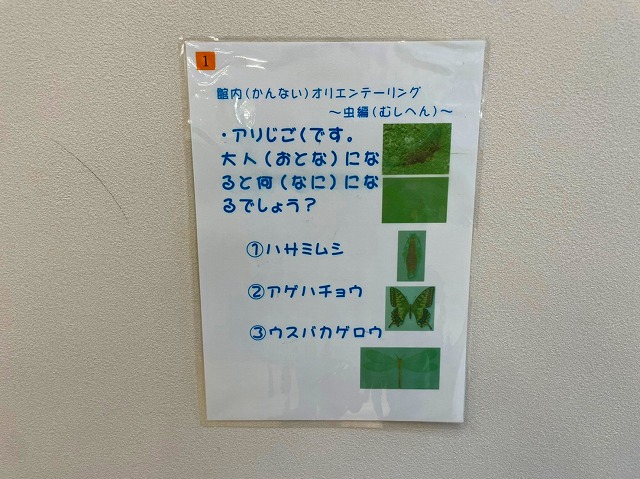 1
館内(かんない)オリエンテーリング
～虫編(むしへん)～
・アリじごくです。
大人(おとな)にな
ると何(なに)にな
るでしょう?
①ハサミムシ
②アゲハチョウ
③ウスバカゲロウ